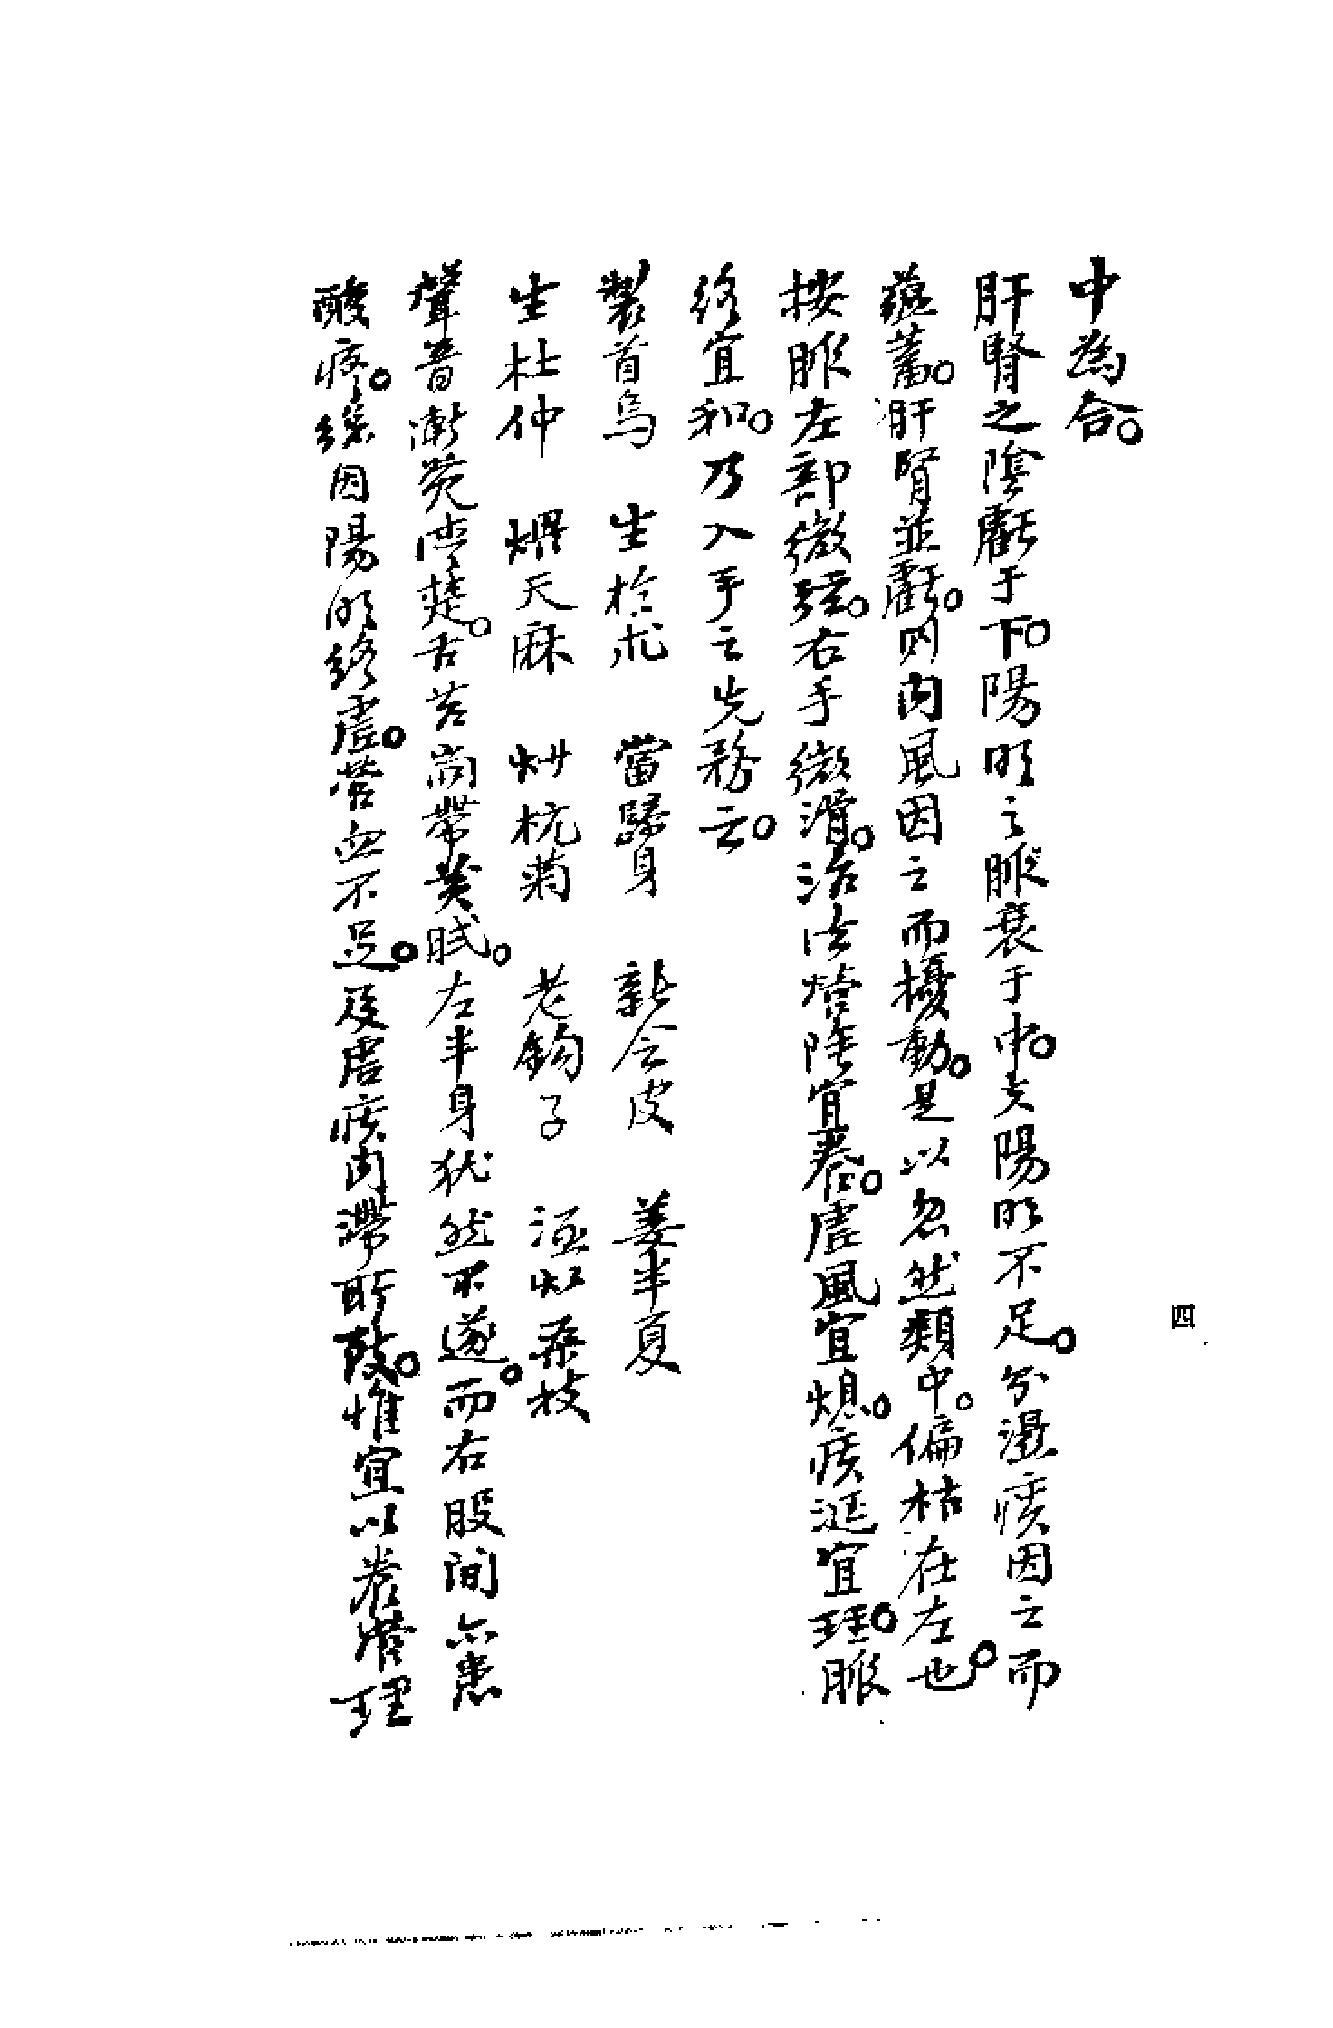 中為合。
肝腎之陰虧于下。陽明之脈衰于中。夫陽明不足。分濕痰因之而
蘊蓄。肝腎並虧。則內風因之而擾動。是以忽然類中。偏枯在左也。
按脈左部微弦。右手微滑。治法營陰宜養。虛風宜熄。痰涎宜理。脈
絡宜和。乃入手之先務云。
製首烏　生於朮　當歸身　新會皮　姜半夏
生杜仲　煨天麻　炒杭菊　老鈎子　酒炒桑枝
聲音漸覺清楚。舌苔尚帶黃膩。左半身犹然不遂。而右股間亦患
酸疼。緣因陽明絡虛。營血不足。及虛痰內滯所致。惟宜以養營理
四